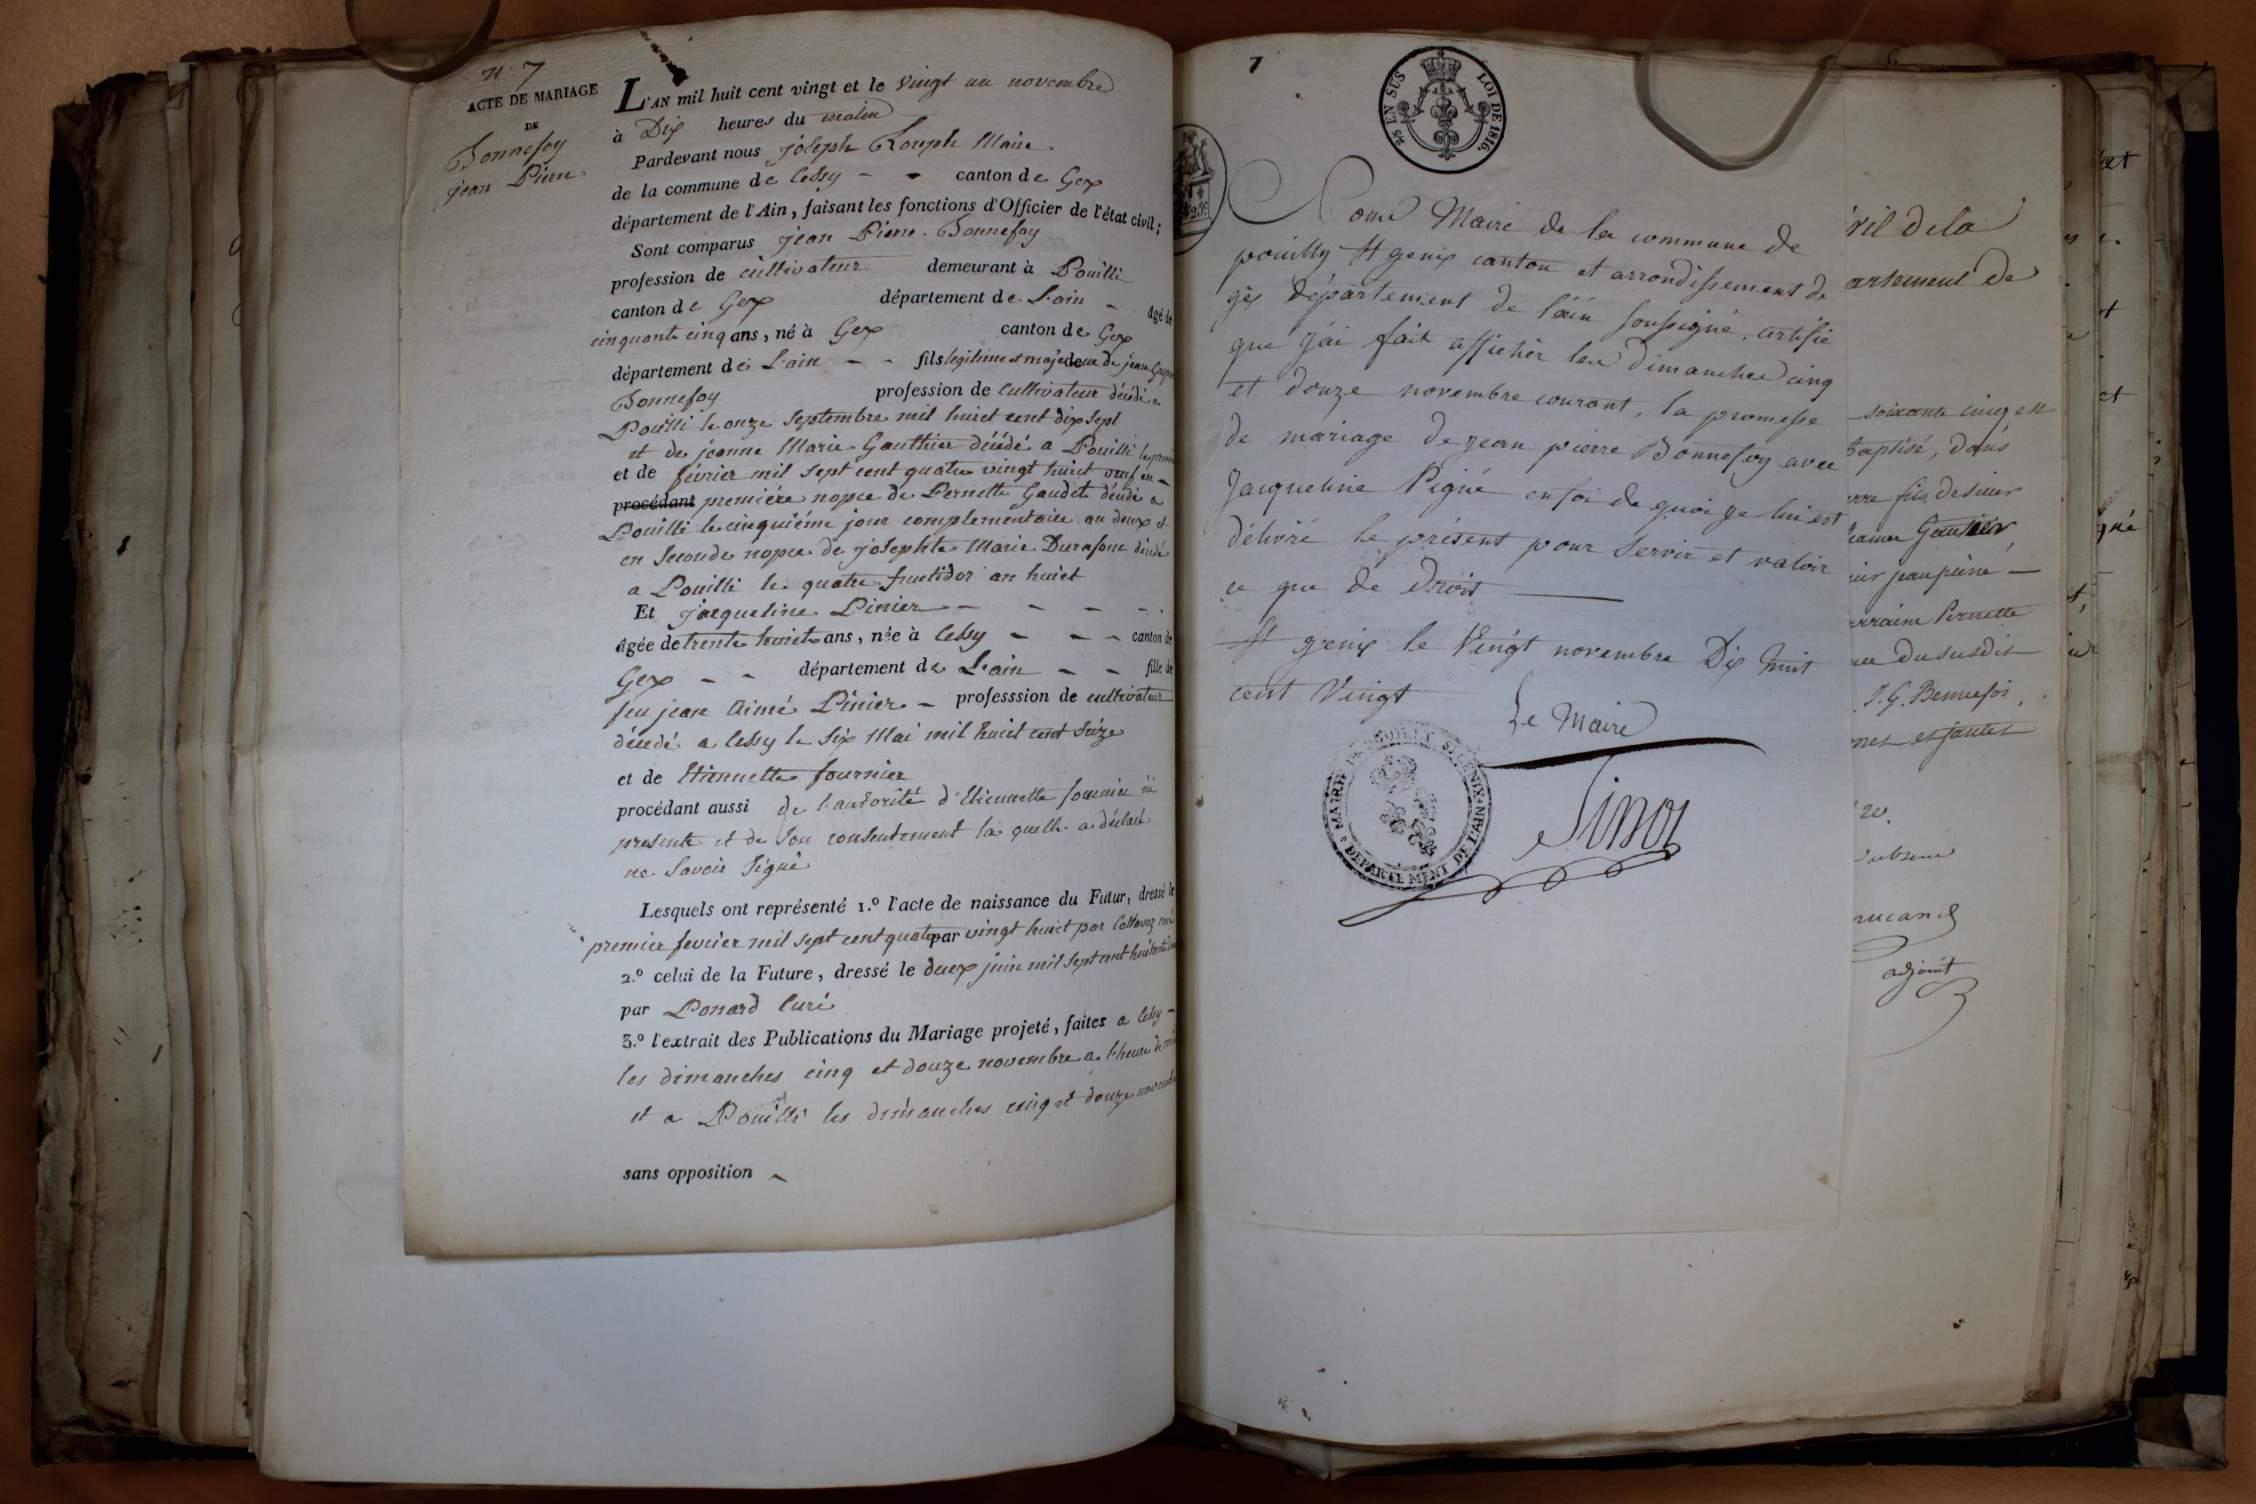 N 7
ACTE DE MARIAGE
DE
Bonnefoy
jean Pierre
L'AN mil huit cent vingt et le vingt un novembre
à Dix heures du matin
Pardevant nous joseph Maire
de la commune de Cessy - - canton de Gex
département de l'Ain, faisant les fonctions d'Officier de l'état civil;
Sont comparus jean Pierre Bonnefoy
profession de cultivateur demeurant à Pouilli
canton de Gex département de L'ain - âgé de
cinquante cinq ans, né à Gex canton de Gex
département de L'ain - - fils legitime et majeur de jean
Bonnefoy profession de cultivateur décédé a
Pouilli le onze Septembre mil huict cent dix sept
et de jeanne Marie Gauthier décédé a Pouilli le
et de février mil sept cent quatre vingt huict veuf en
procédant première nopce de Pernette Gaudet décédé a
Pouilli le cinquième jour complementaire an deux et
en Seconde nopce de josephte Marie Durafour décédé
a Pouilli le quatre fructidor an huict
Et jacqueline Pinier - - - -
âgée de trente huict ans, née à Cessy - - - canton de
Gex - - département de L'ain - - fille de
feu jean Aimé Pinier - professsion de cultivateur
décédé a Cessy le Six Mai mil huict cent Seize
et de Etiennette fournier
procédant aussi de l'autorité d'Etiennette fournier ici
presente et de Son consentement la quelle a déclaré
ne Savoir Signé
Lesquels ont représenté 1.º l'acte de naissance du Futur, dressé le
premier fevrier mil sept cent quatre par vingt huict par curé
2.º celui de la Future, dressé le deux juin mil sept cent
par Ponard Curé
3.º l'extrait des Publications du Mariage projeté, faites a Cessy -
les dimanches cinq et douze novembre a l'heure de
et a Pouilli les dimanches cinq et douze novembre
sans opposition
7
EN SUS
LOI DE 1816.
Nous Maire de la commune de
pouilly St genix canton et arrondissement de
gex département de l'ain soussigné, certifie
que j'ai fait afficher les dimanches cinq
et douze novembre courant, la promesse
de mariage de jean pierre Bonnefoy avec
Jacqueline Pigné en foi de quoi je lui est
délivré le présent pour servir et valoir
ce que de Droit
St genix le Vingt novembre Dix huit
cent Vingt
Le Maire
MAIRIE DE POUILLY ST GENIX DÉPARTEMENT DE L'AIN
vil de la
artement de
soixante cinq est
baptisé, dans
erre fils de sieur
Gautier,
jean pierre -
arraine Pernette
du susdit
J. G. Bennefoi,
20.
adjoint